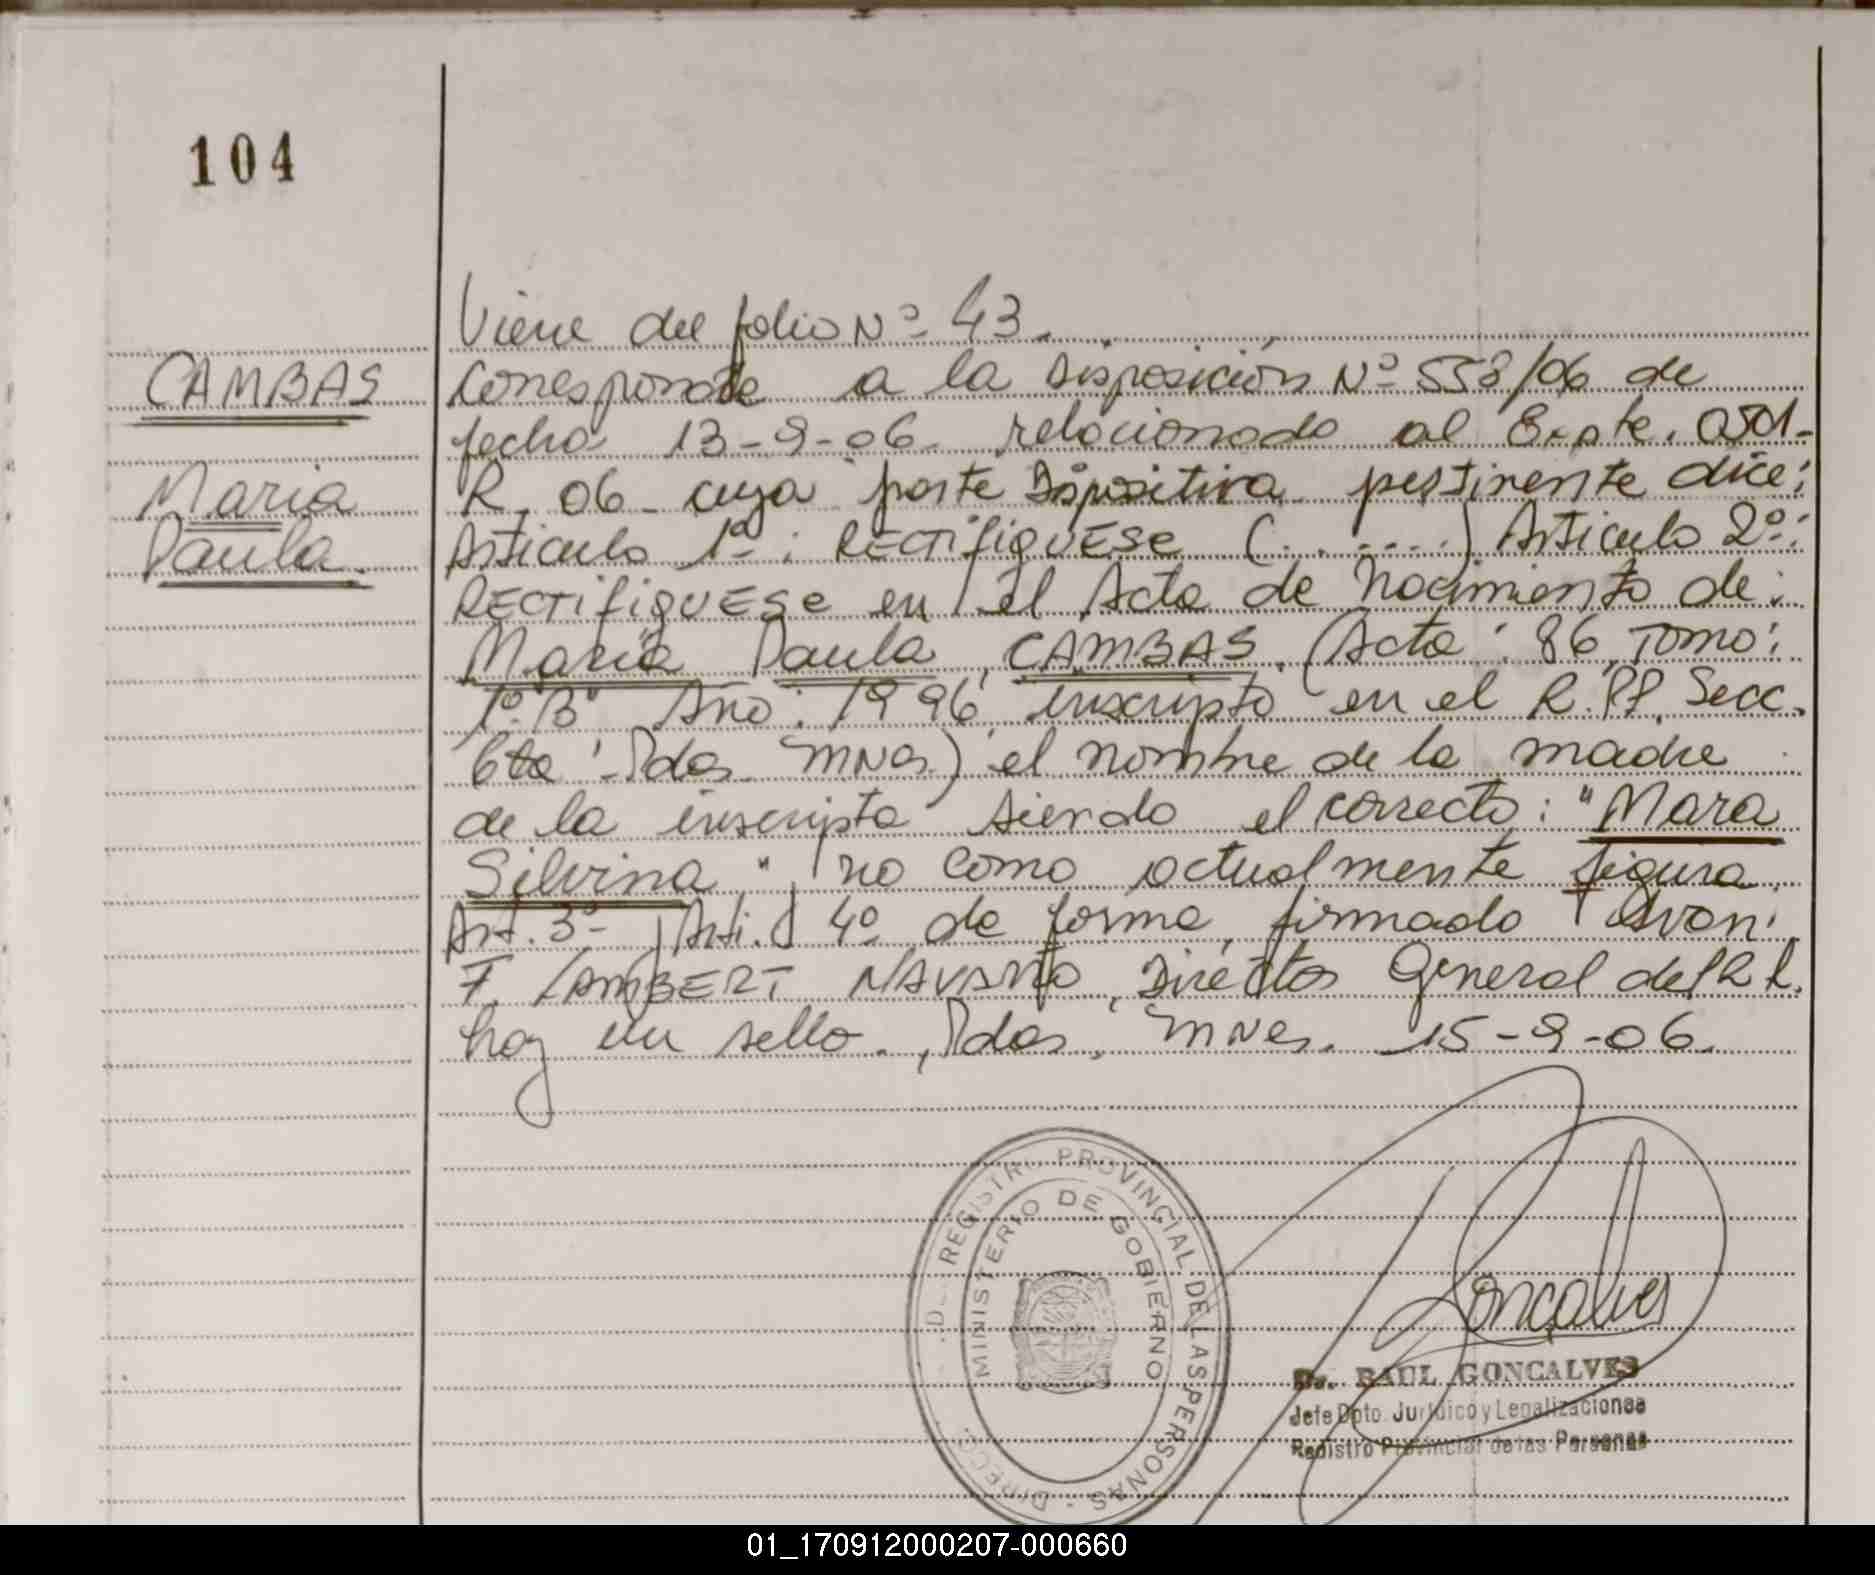 104
Viene del folio Nº 43.
CAMBAS
Maria
Paula.
Corresponde a la Disposición Nº 558/06 de
fecha 13-9-06 relacionado al Expte.
R. 06 cuya parte Dispositiva pertinente dice:
Articulo 1º: RECTIFIQUESE (......) Articulo 2º:
RECTIFIQUESE en el Acta de Nacimiento de:
Maria Paula CAMBAS. (Acta: 86 Tomo:
1º "B" Año: 1996 inscripta en el R.PP. Secc.
6ta - Pdas. Mnes.) el nombre de la madre
de la inscripta siendo el correcto: "Mara
Silvina" y no como actualmente figura.
Art. 3º y Arti. 4º de forma, firmado
F. LAMBERT NAVARRO, Director General del R.P.
hay un sello. Pdas. Mnes. 15-9-06.
Goncalves
DIRECC REGISTRO PROVINCIAL DE LAS PERSONAS
MINISTERIO DE GOBIERNO
Dr. RAUL GONCALVES
Jefe Dpto. Jurídico y Legalizaciones
Registro Provincial de las Personas
01_170912000207-000660